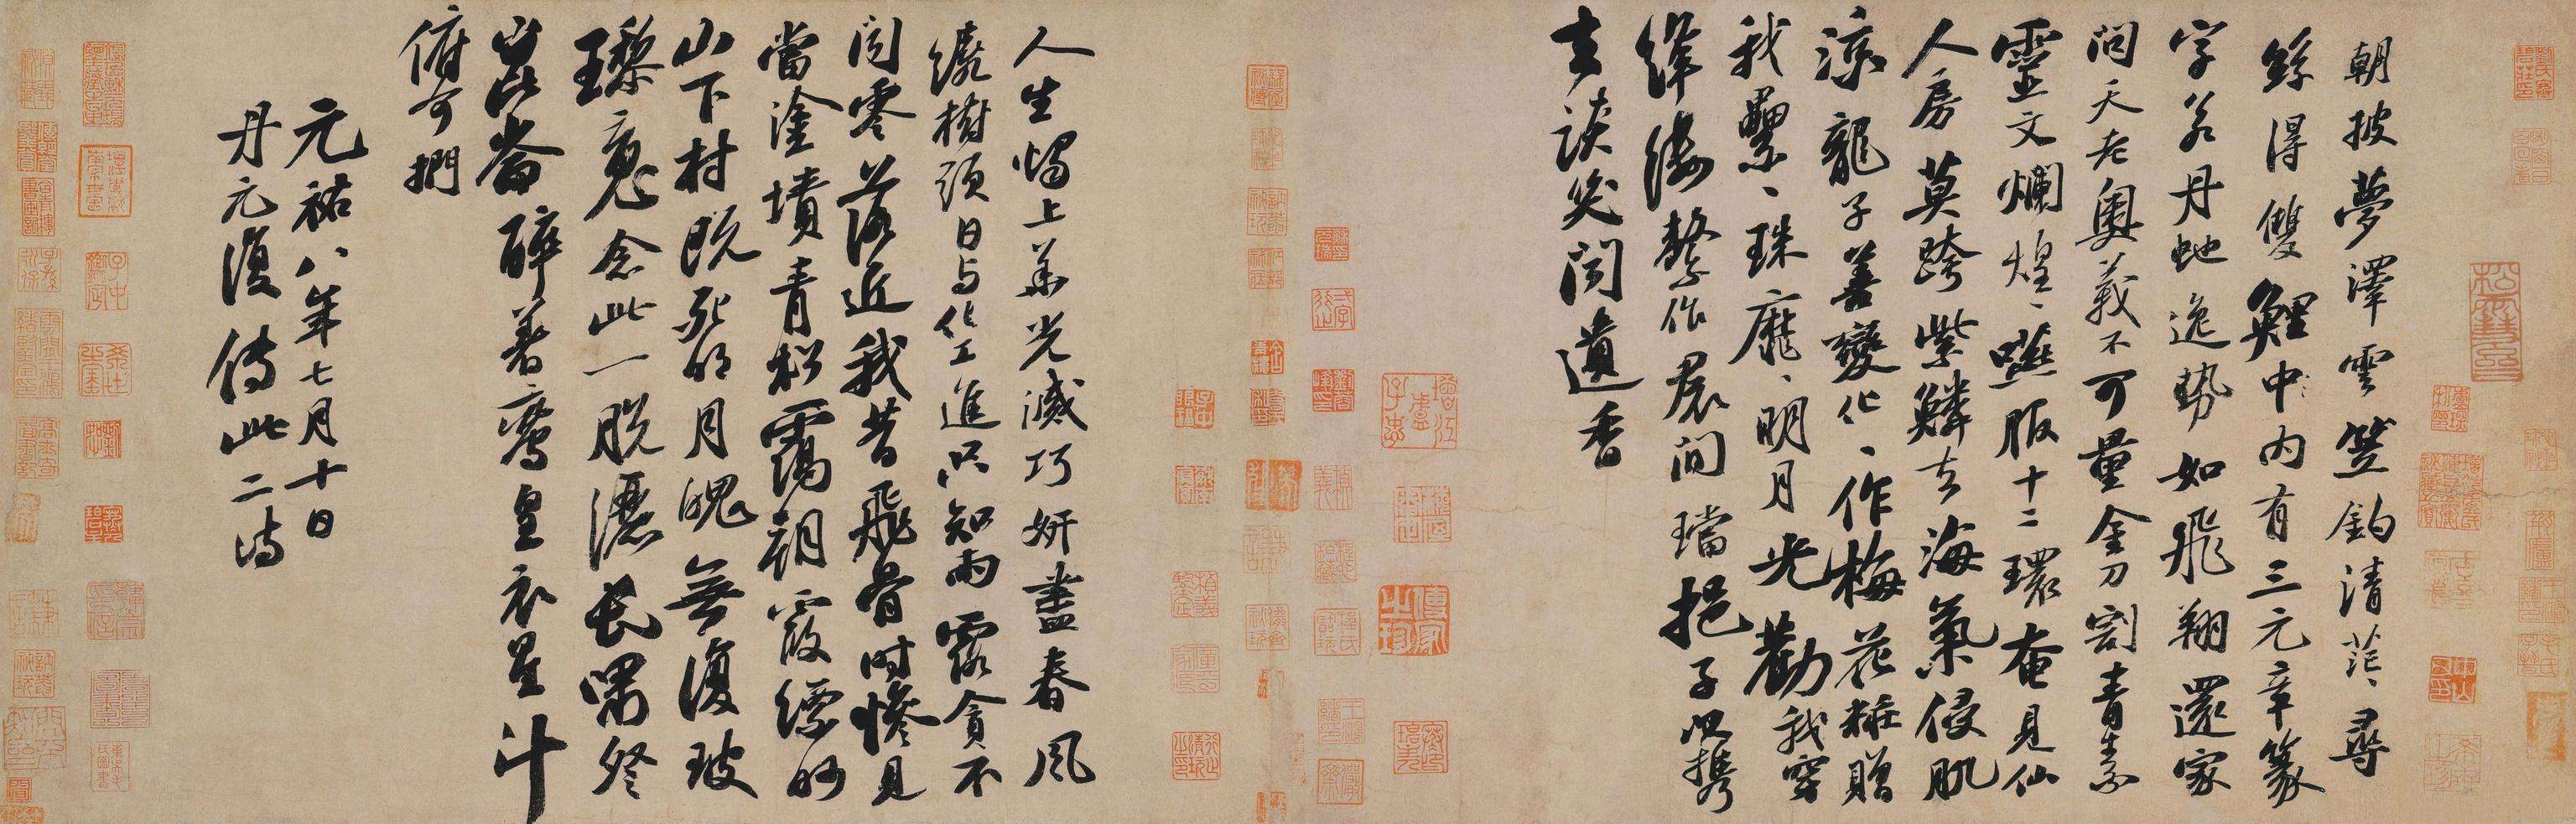 朝披夢澤雲笠釣清茫〻尋
絲得雙鯉中〻內有三元章篆
字若丹虵逸勢如飛翔還家
問天老奧義不可量金刀割青素
靈文爛煌〻嚥服十二環奄見仙
人房莫跨紫鱗去海氣侵肌
涼龍子善變化〻作梅花糚贈
我纍〻珠靡〻明月光勸我穿
絳縷繫作裙間璫挹子以攜
去談笑聞遺香
人生燭上華光滅巧妍盡春風
繞樹頭日與化工進只知雨露貪不
聞零落近我昔飛骨時慘見
當塗墳青松靄朝霞縹眇
山下村既死明月魄無復玻
瓈魂念此一脫灑長嘯祭
崑崙醉著鸞皇衣星斗
俯可捫
元祐八年七月十日
丹元復傳此二詩